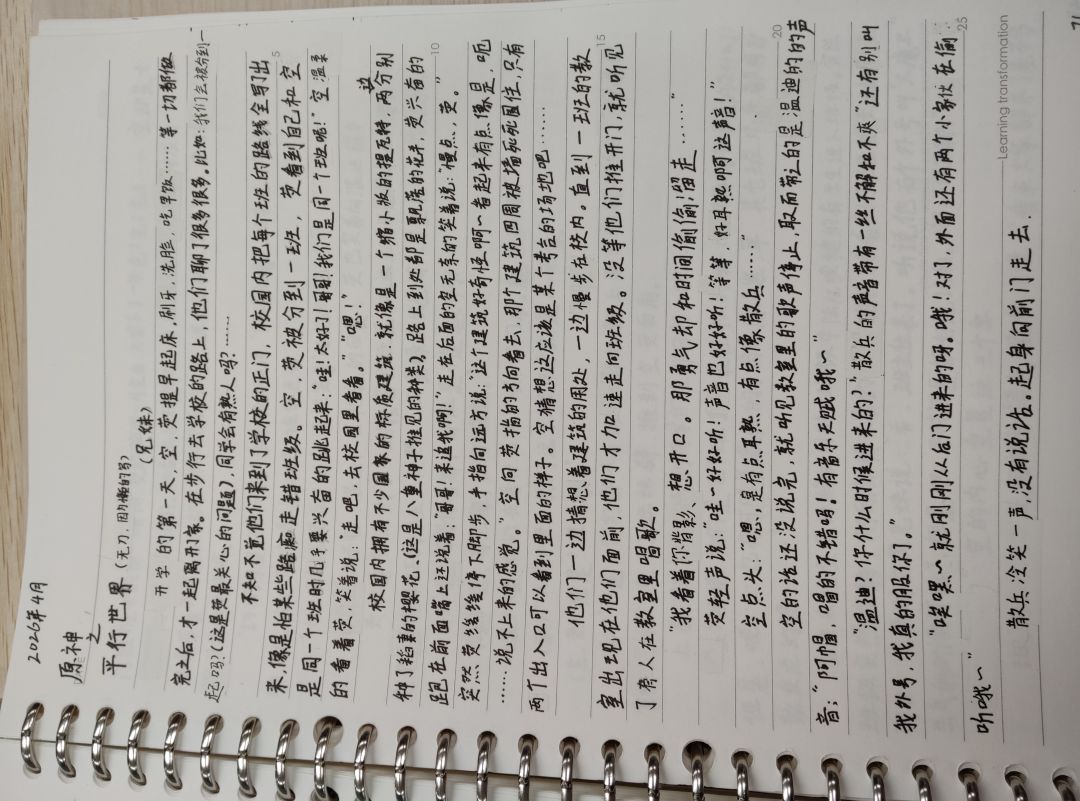 2026年4月
原神
之
平行世界 (无刀,因为懒的写)
(兄妹)
开学的第一天,空,荧提早起床,刷牙,洗脸,吃早饭……等一切都做
完之后,才一起离开家。在步行去学校的路上,他们聊了很多很多。比如:我们会被分到一
起吗?(这是荧最关心的问题),同学会有熟人吗?……
不知不觉他们来到了学校的正门,校园内把每个班的路线全写了出
来,像是怕某些路痴走错班级。空,荧被分到一班,荧看到自己和空
是同一个班时几乎要兴奋的跳起来:“哇!太好了!哥哥!我们是同一个班呢!”空温柔
的看着荧,笑着说:“走吧,去校园里看看。”“嗯!”
校园内拥有不少国家的标质建筑,就像是一个缩小版的提瓦特,两边分别
种了稻妻的樱花、(这是八重神子推见的种类),路上到处都是飘落的花卉,荧兴奋的
跑在前面嘴上还说着:“哥哥!来追我啊!”走在后面的空无奈的笑着说:“慢点,荧。”
突然荧缓缓停下脚步,手指向远方说:“这个建筑好奇怪啊一看起来有点像是,呃
……说不上来的感觉。”空向荧指的方向看去,那个建筑四周被墙死死围住,只有
两个出入口可以看到里面的样子。空猜想这应该是某个考古的场地吧……
他们一边猜想着建筑的用处,一边慢步在校内。直到一班的教
室出现在他们面前,他们才加速走向班级。没等他们推开门,就听见
了有人在教室里唱歌。
“我看着你背影、想开口。那勇气却和时间偷偷溜走……”
荧轻声说:“哇~好好听!声音也好好听!等等,好耳熟啊这声音!”
空点头:“嗯,是有点耳熟,有点像散兵……”
空的话还没说完,就听见教室里的歌声停止,取而带之的是温迪的的声
音:“阿帽,唱的不错吗!有音乐天赋哦~”
“温迪?你什么时候进来的?”散兵的声音带有一丝不解和不爽“还有别叫
我外号,我真的服你了。”
“唉嘿~就刚刚从后门进来的呀。哦!对了,外面还有两个小家伙在偷
听哦~”
散兵冷笑一声,没有说话。起身向前门走去.
5
10
15
20
25
Learning transformation